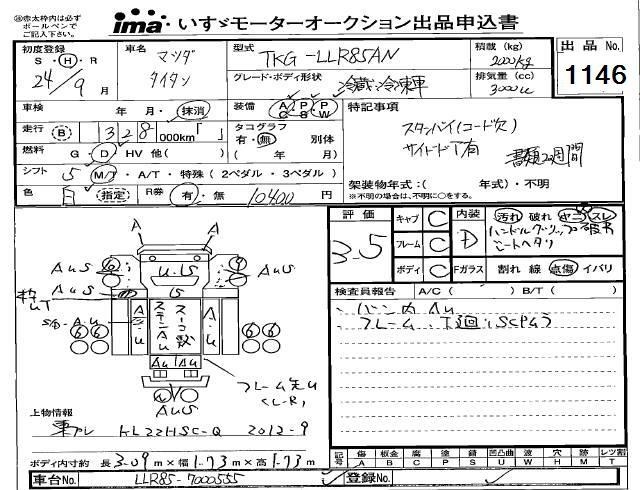 ※赤太枠内は必ず
ボールペンで
ご記入下さい。
ima いすゞモーターオークション出品申込書
初度登録
S・H・R
24/9月
車名
マツダ
タイタン
型式
TKG-LLR85AN
グレード・ボディ形状
冷蔵冷凍車
積載(kg)
2000kg
排気量(cc)
3000cc
出品 No.
1146
車検 年・月・抹消
装備 A/C P/S P/W
特記事項
スタンバイ(コード欠)
サイドド丁有
書類2週間
走行 B 328 000km「 」
タコグラフ
有・無 別体
( 年/ 月)
燃料 G・D・HV 他( )
シフト 5 M/T・A/T・特殊(2ペダル・3ペダル)
架装物年式:( 年式)・不明
※不明の場合は、不明に○をする。
色 白 指定 R券 有・無 10400円
評価 3.5
キャブ C
フレーム C
ボディ C
内装 D
Fガラス
汚れ 破れ ヤニ スレ
ハンドルグリップ破れ
シートヘタリ
割れ 線 点傷 イバリ
検査員報告 A/C( ) B/T( )
バン内 Au
フレーム、下廻りSCPムラ
A
AuS
U・US
AuS
US
S/B・Au
A・U
A
Au
AuS
フレーム先U
(L-R)
上物情報
東プレ HL22HSC-Q 2012-9
ボディ内寸約 長3.09m×幅1.73m×高1.73m
記号 傷 板金 腐 塗 錆 凹凸曲 波 穴 跡 レツ割
A B C P S U W H M T
車台No. LLR85-7000555 登録No.